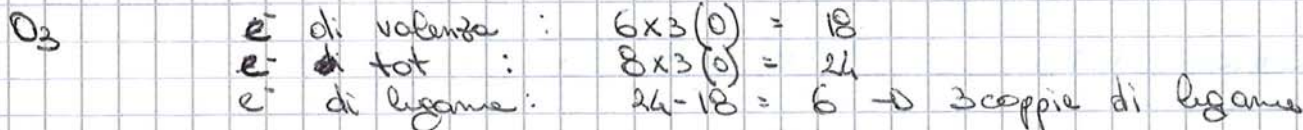 O₃ e⁻ di valenza : 6x3(O) = 18
e⁻ di tot : 8x3(O) = 24
e⁻ di legame : 24-18 = 6 → 3 coppie di legame